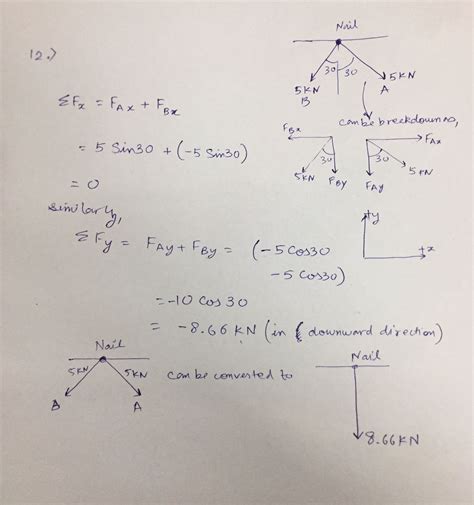 12.)
Nail
30 30
5KN 5KN
B A
can be breakdown as,
ΣFx = FAx + FBx
= 5 Sin30 + (-5 Sin30)
= 0
FBx FAx
30 30
5KN FBy FAy 5KN
Similarly,
ΣFy = FAy + FBy = (-5Cos30
-5 Cos30)
+y
+x
= -10 Cos 30
= -8.66 KN (in downward direction)
Nail
5KN 5KN
B A
can be converted to
Nail
8.66KN